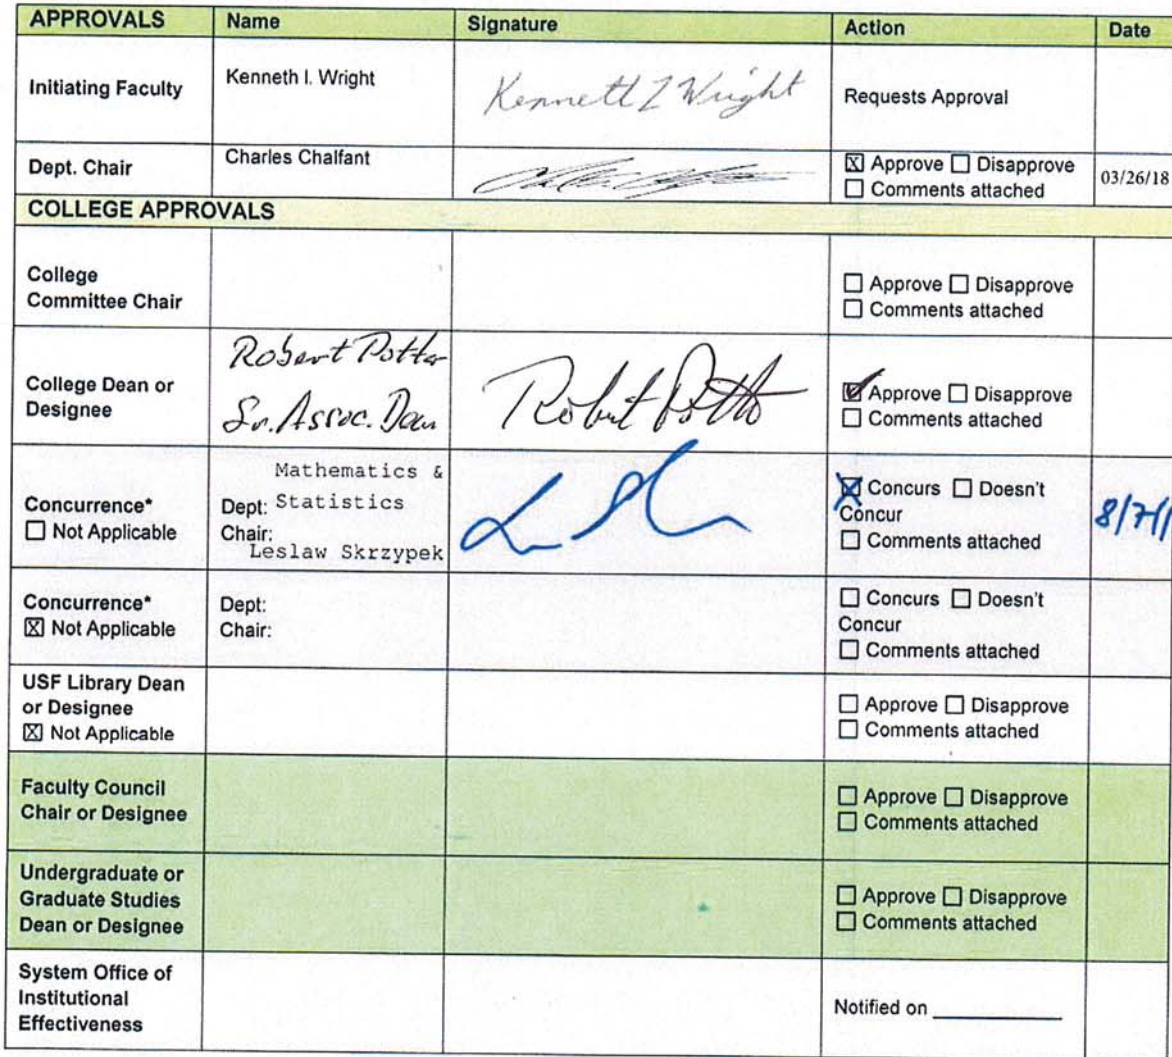 APPROVALS Name Signature Action Date
Initiating Faculty Kenneth I. Wright Kenneth I Wright Requests Approval
Dept. Chair Charles Chalfant ☒ Approve ☐ Disapprove 03/26/18
☐ Comments attached
COLLEGE APPROVALS
College
Committee Chair
☐ Approve ☐ Disapprove
☐ Comments attached
College Dean or
Designee
Robert Potter
Sr. Assoc. Dean
Robert Potter
☑ Approve ☐ Disapprove
☐ Comments attached
Concurrence*
☐ Not Applicable
Dept: Mathematics &
Statistics
Chair:
Leslaw Skrzypek
☒ Concurs ☐ Doesn't
Concur
☐ Comments attached
8/7/1
Concurrence*
☒ Not Applicable
Dept:
Chair:
☐ Concurs ☐ Doesn't
Concur
☐ Comments attached
USF Library Dean
or Designee
☒ Not Applicable
☐ Approve ☐ Disapprove
☐ Comments attached
Faculty Council
Chair or Designee
☐ Approve ☐ Disapprove
☐ Comments attached
Undergraduate or
Graduate Studies
Dean or Designee
☐ Approve ☐ Disapprove
☐ Comments attached
System Office of
Institutional
Effectiveness
Notified on ____________